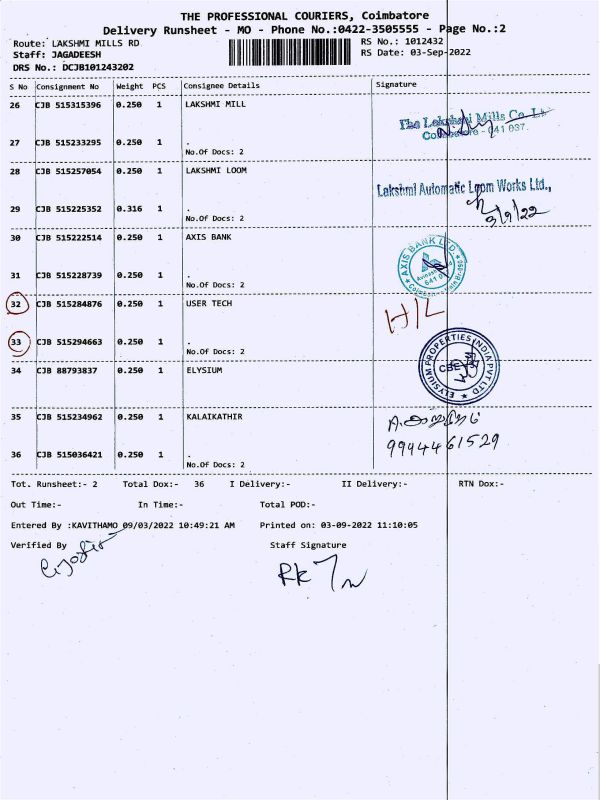 THE PROFESSIONAL COURIERS, Coimbatore
Delivery Runsheet - MO - Phone No.:0422-3505555 - Page No.:2
Route: LAKSHMI MILLS RD RS No.: 1012432
Staff: JAGADEESH RS Date: 03-Sep-2022
DRS No.: DCJB101243202
S No Consignment No Weight PCS Consignee Details Signature
26 CJB 515315396 0.250 1 LAKSHMI MILL
The Lakshmi Mills Co. Lt
Coimbatore - 641 037.
27 CJB 515233295 0.250 1 .
No.Of Docs: 2
28 CJB 515257054 0.250 1 LAKSHMI LOOM
Lakshmi Automatic Loom Works Ltd.,
29 CJB 515225352 0.316 1 .
3/9/22
No.Of Docs: 2
30 CJB 515222514 0.250 1 AXIS BANK
AXIS BANK LTD.
31 CJB 515228739 0.250 1 .
No.Of Docs: 2
32 CJB 515284876 0.250 1 USER TECH
H/L
33 CJB 515294663 0.250 1 .
No.Of Docs: 2
ELYSIUM PROPERTIES INDIA PVT LTD
CBE-37
34 CJB 88793837 0.250 1 ELYSIUM
35 CJB 515234962 0.250 1 KALAIKATHIR
9944461529
36 CJB 515036421 0.250 1 .
No.Of Docs: 2
Tot. Runsheet:- 2 Total Dox:- 36 I Delivery:- II Delivery:- RTN Dox:-
Out Time:- In Time:- Total POD:-
Entered By :KAVITHAMO 09/03/2022 10:49:21 AM Printed on: 03-09-2022 11:10:05
Verified By Staff Signature